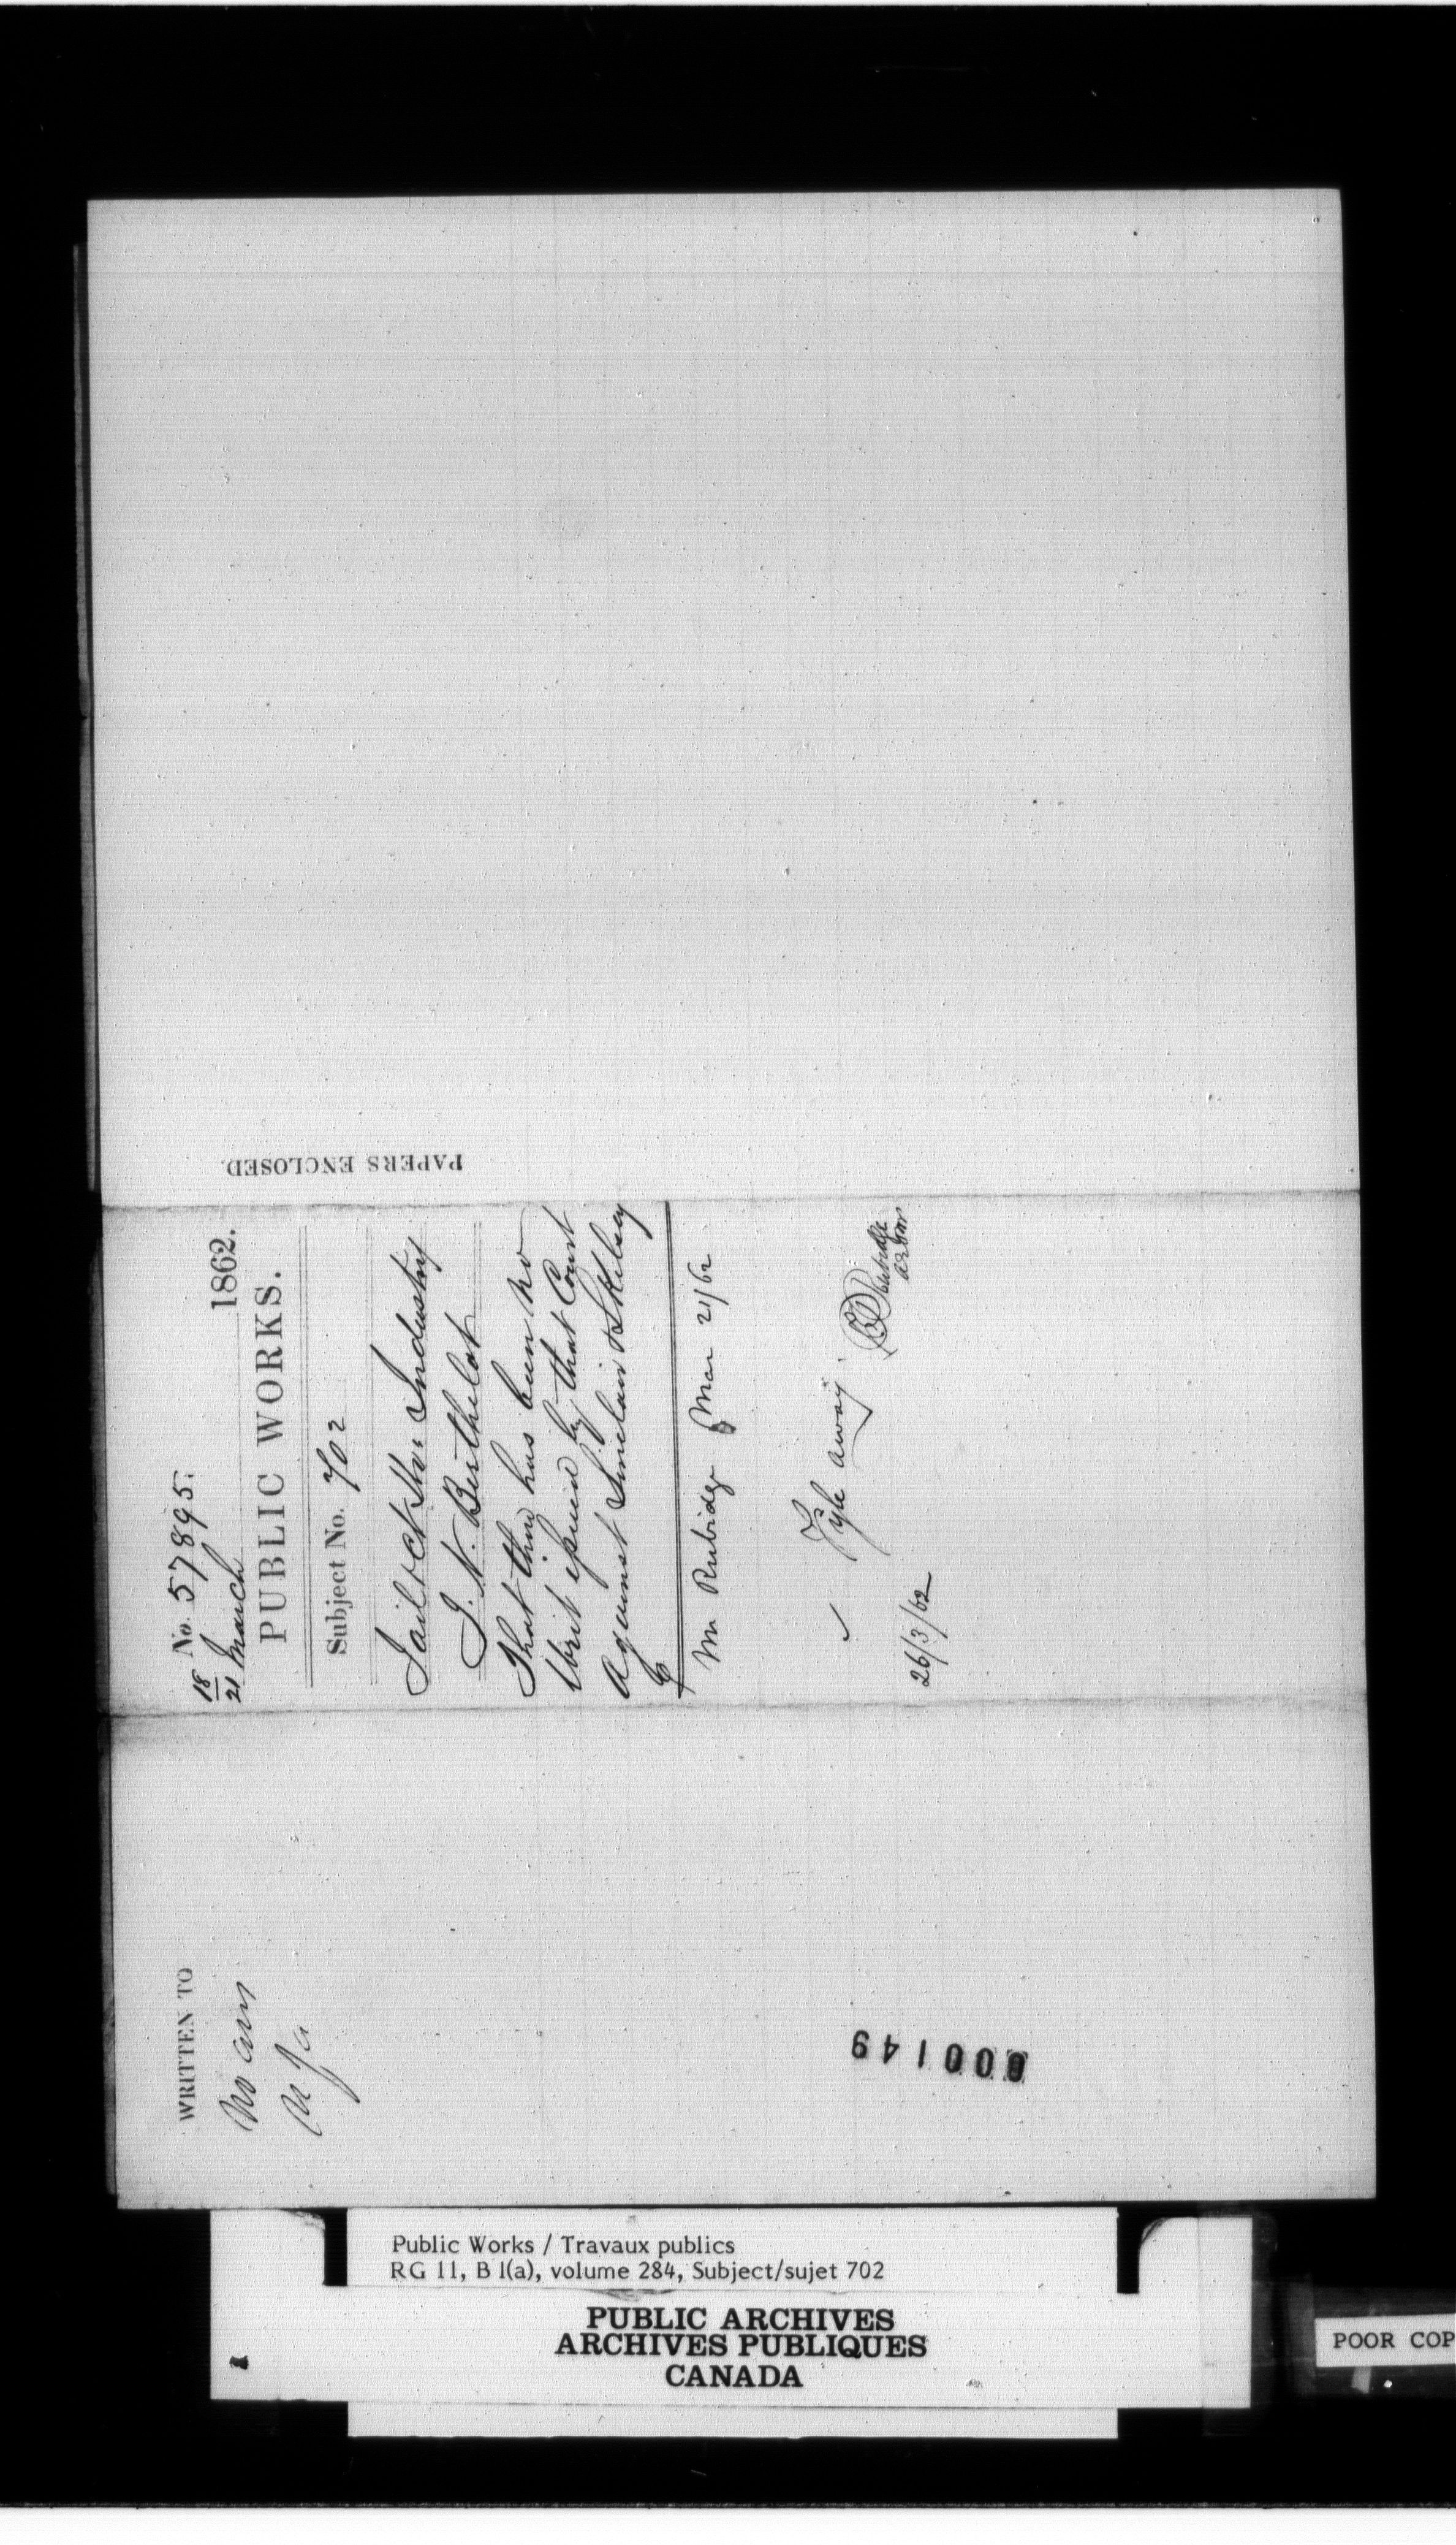 No. 57895.
18/21 March 1862.
PUBLIC WORKS.
Subject No. 702
Jail & Ct Hse Industry
J. N. Berthelot
That there has been no
Writ issued by that Court
against Sinclair & Skelsey
Mr Rubidge Mar 21/62
Fyle away
26/3/62
PAPERS ENCLOSED.
WRITTEN TO
No ans
000149
Public Works / Travaux publics
RG 11, B 1(a), volume 284, Subject/sujet 702
PUBLIC ARCHIVES
ARCHIVES PUBLIQUES
CANADA
POOR COP